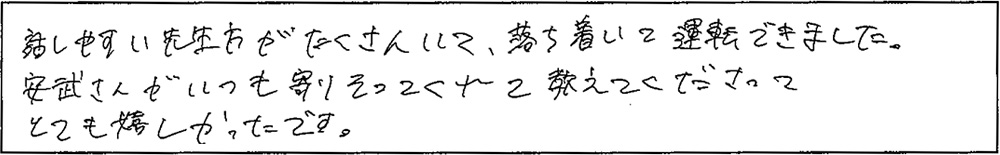 話しやすい先生方がたくさんいて、落ち着いて運転できました。
安武さんがいつも寄りそってくれて教えてくださって
とても嬉しかったです。